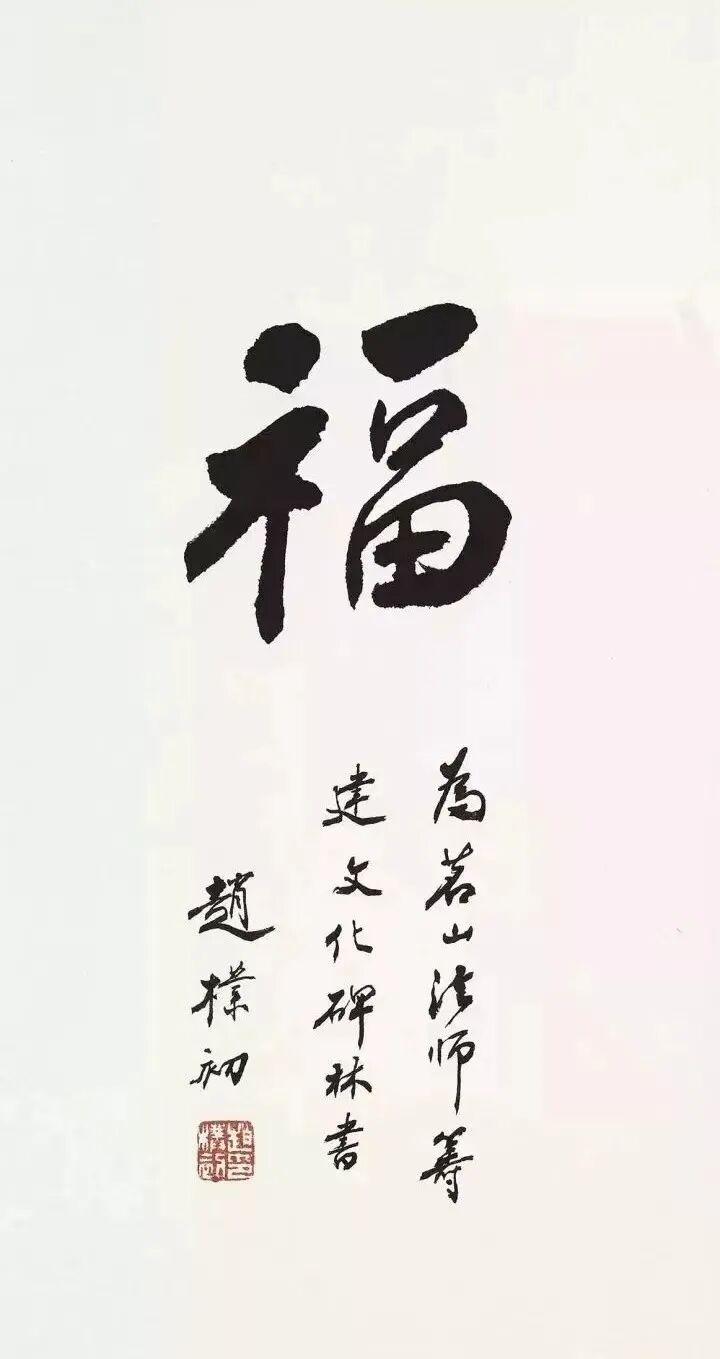 福
為茗山法师籌
建文化碑林書
趙樸初